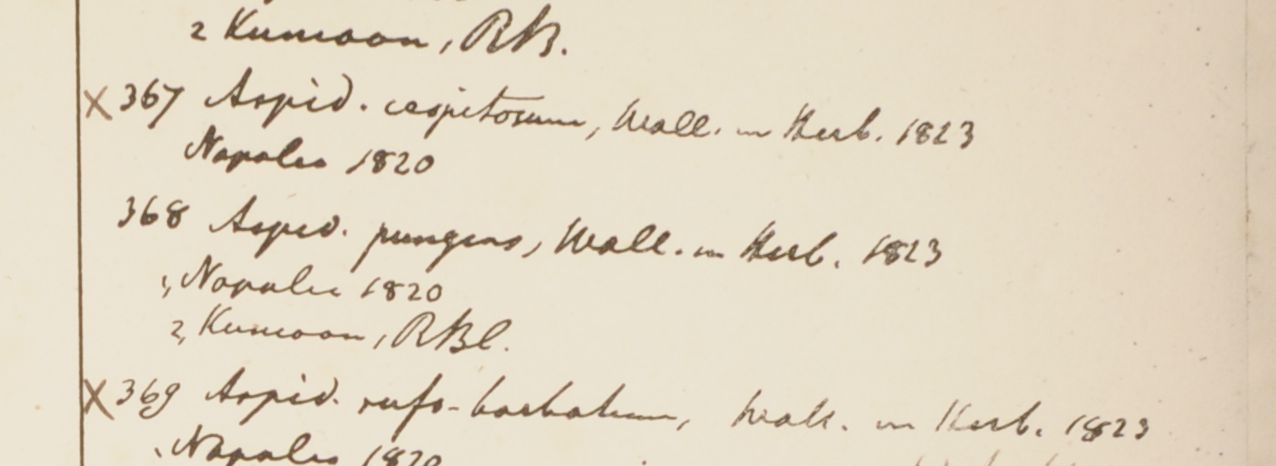 2 Kumaon, RB.
X 367 Aspid. cespitosum, Wall. in Herb. 1823
Napalia 1820
368 Aspid. pungens, Wall. in Herb. 1823
1, Napalia 1820
2, Kumaon, RBl.
X 369 Aspid. rufo-barbatum, Wall. in Herb. 1823
Napalia 1820